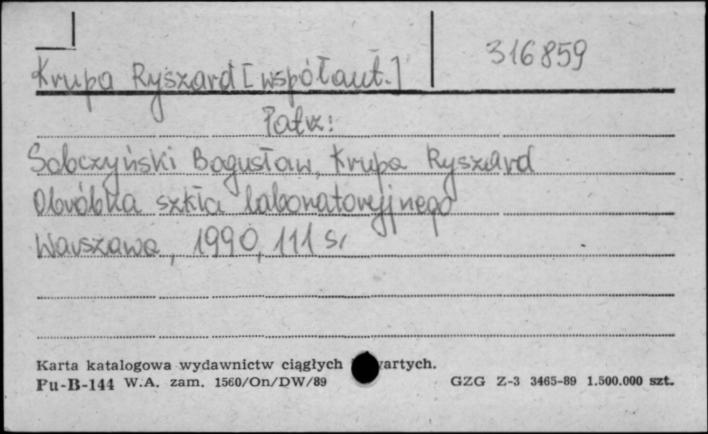 316859
Krupa Ryszard [współaut.]
Patrz:
Sobczyński Bogusław, Krupa Ryszard
Obróbka szkła laboratoryjnego
Warszawa, 1990, 111 s.
Karta katalogowa wydawnictw ciągłych wartych.
Pu-B-144 W.A. zam. 1560/On/DW/89 GZG Z-3 3465-89 1.500.000 szt.